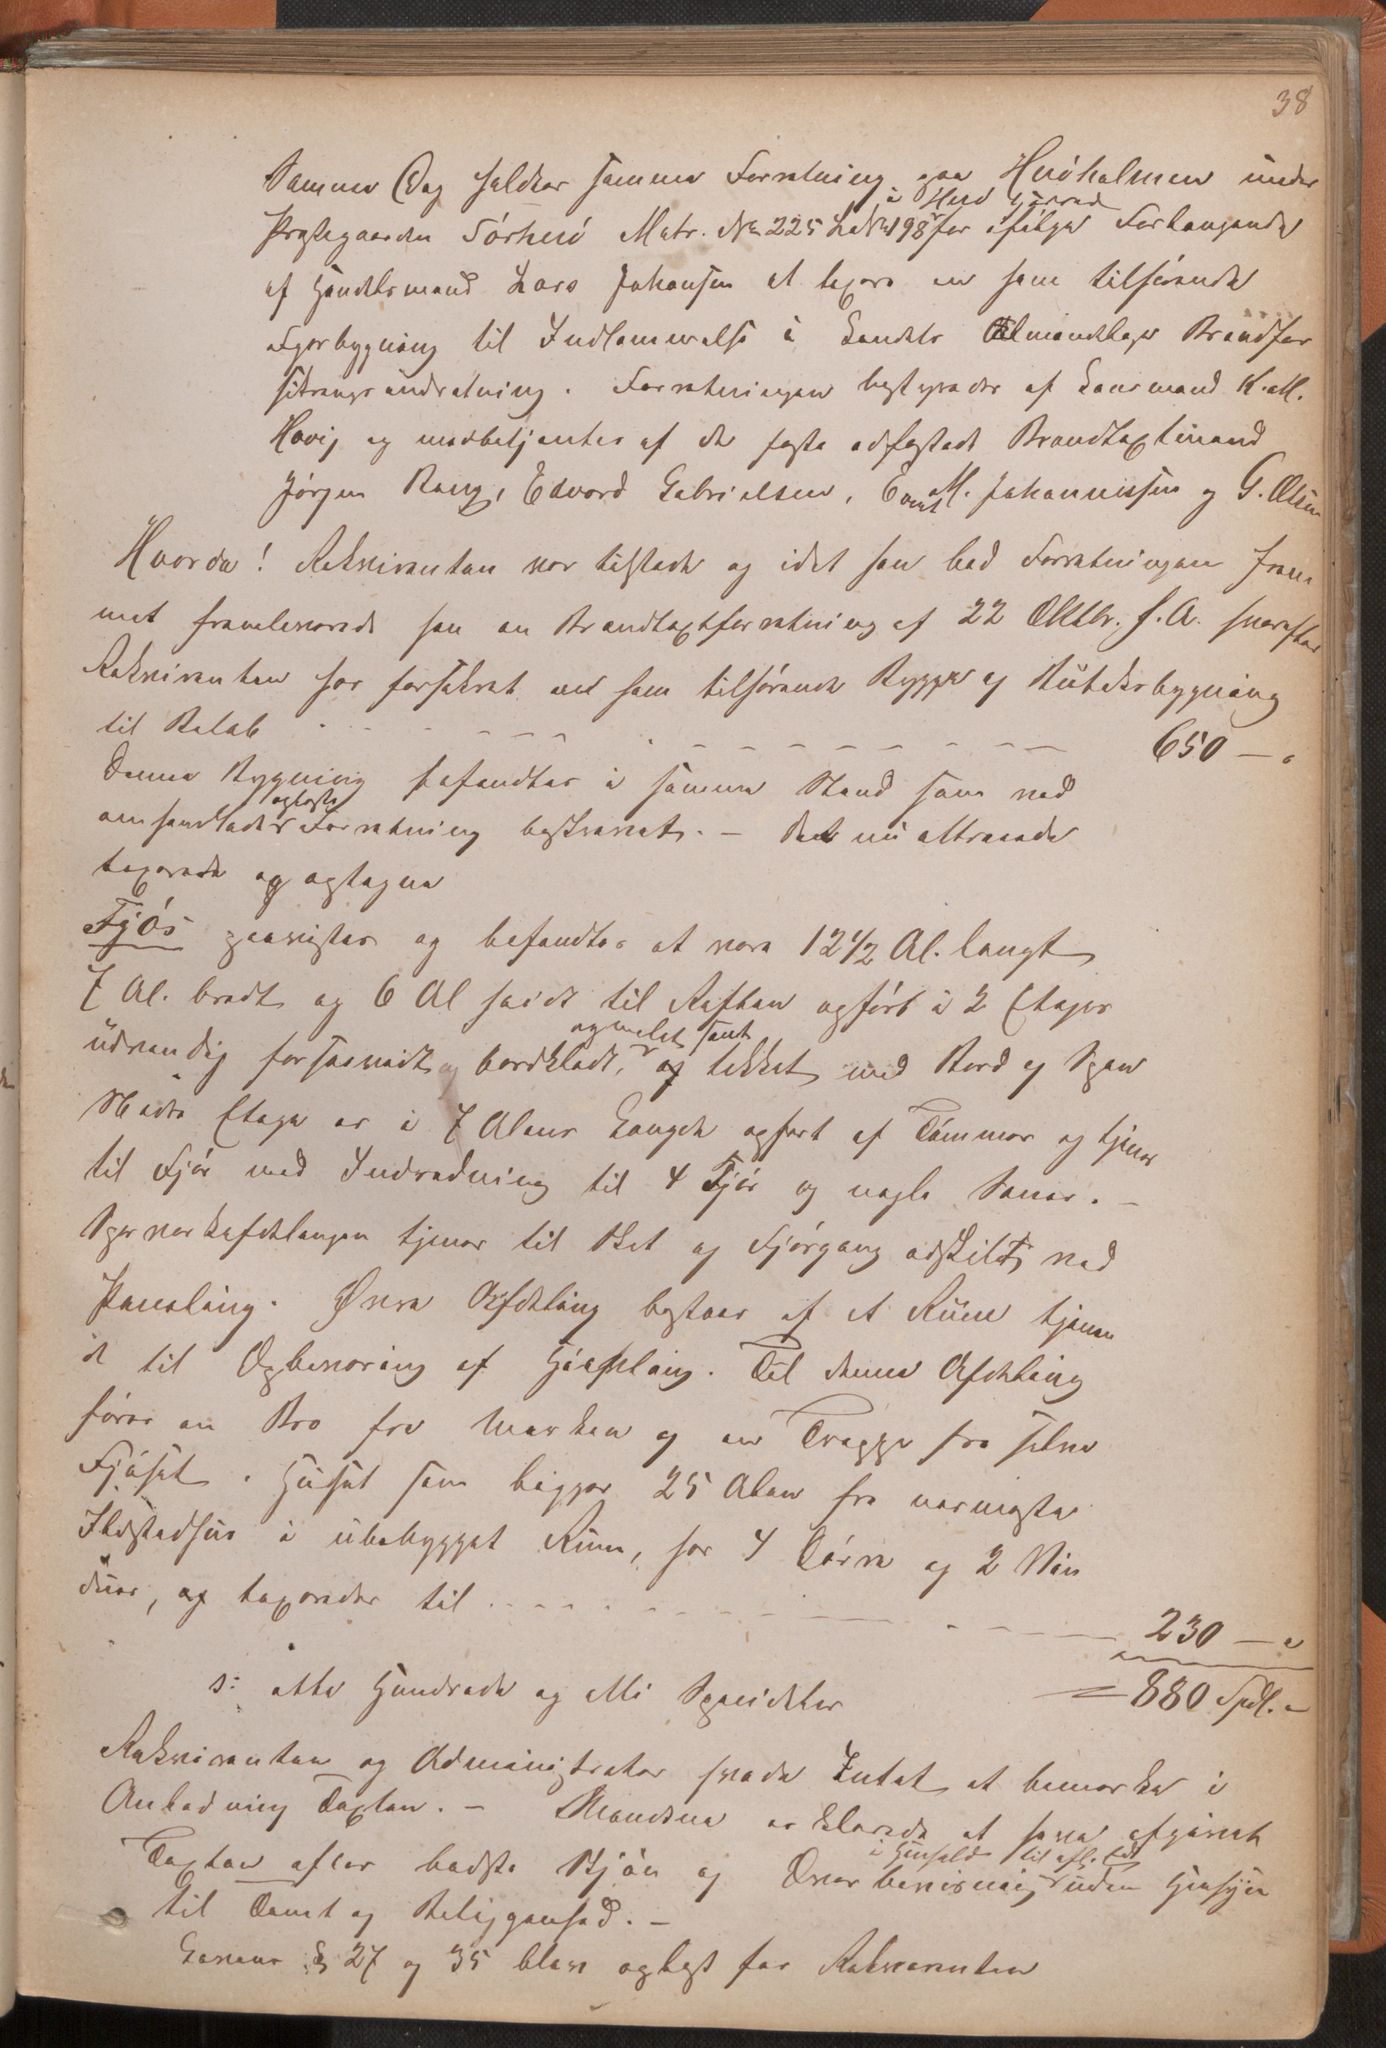 38
Samme Dag holdtes samme Forretning paa Herøholmen under
Præstegaarden Sørherø Matr. No 225 L. No 198 i Herø Sogn for ifølge Forlangende
af Handelsmand Lars Johansen at taxere en ham tilhørende
Fjøsbygning til Indlemmelse i Landets Almindelige Brandfor
sikringsindretning. Forretningen bestyredes af Lensmand K. M.
Havig og medbetjentes af de faste edfæstede Brandtaxtmænd
Jørgen Bang, Edvard Gabrielsen, Ernst M. Johannessen og G. Olsen
Hvorda! Rekvirenten var tilstede og idet han bad Forretningen frem
met fremleverede han en Brandtaxtforretning af 22 Oktbr. f. A. hvorefter
Rekvirenten har forsikret en ham tilhørende Brygge og Butiksbygning
til Beløb 650 –
Denne Bygning befandtes i samme Stand som ved
omhandlede oplæste Forretning beskrevet. – Det nu attraaede
taxerede og optagne
Fjøs paavistes og befandtes at være 12 1/2 Al. langt
7 Al. bredt og 6 Al høit til Raften opført i 2 Etager
udvendig forsvarligt og bordklædt, og malet samt tækket med Bord og Spaan
Nedre Etage er i 7 Alens Længde opført af Tømmer og tjener
til Fjøs med Indredning til 4 Kjør og nogle Souer. –
Sperverksafdelingen tjener til Skot og Fjøsgang adskildt ved
Paneling. Øvre Afdeling bestaar af et Rum tjenen
de til Opbevaring af Høavling. Til denne Afdeling
fører en Bro fra Marken og en Trappe fra selve
Fjøset. Huset som ligger 25 Alen fra nærmeste
Ildstedhus i ubebygget Rum, har 4 Døre og 2 Vin
duer, og taxeredes til 230 –
s: otte Hundrede og otti Speciedaler = 880 Spdl. –
Rekvirenten og Administrator havde Intet at bemærke i
Anledning Taxten. – Mændene erklærede at have afgivet
Taxten efter bedste Skjøn og Overbevisning i Henhold til afl. Ed uden Hensyn
til Tomt og Beliggenhed. –
Lovens § 27 og 35 blev oplæst for Rekvirenten